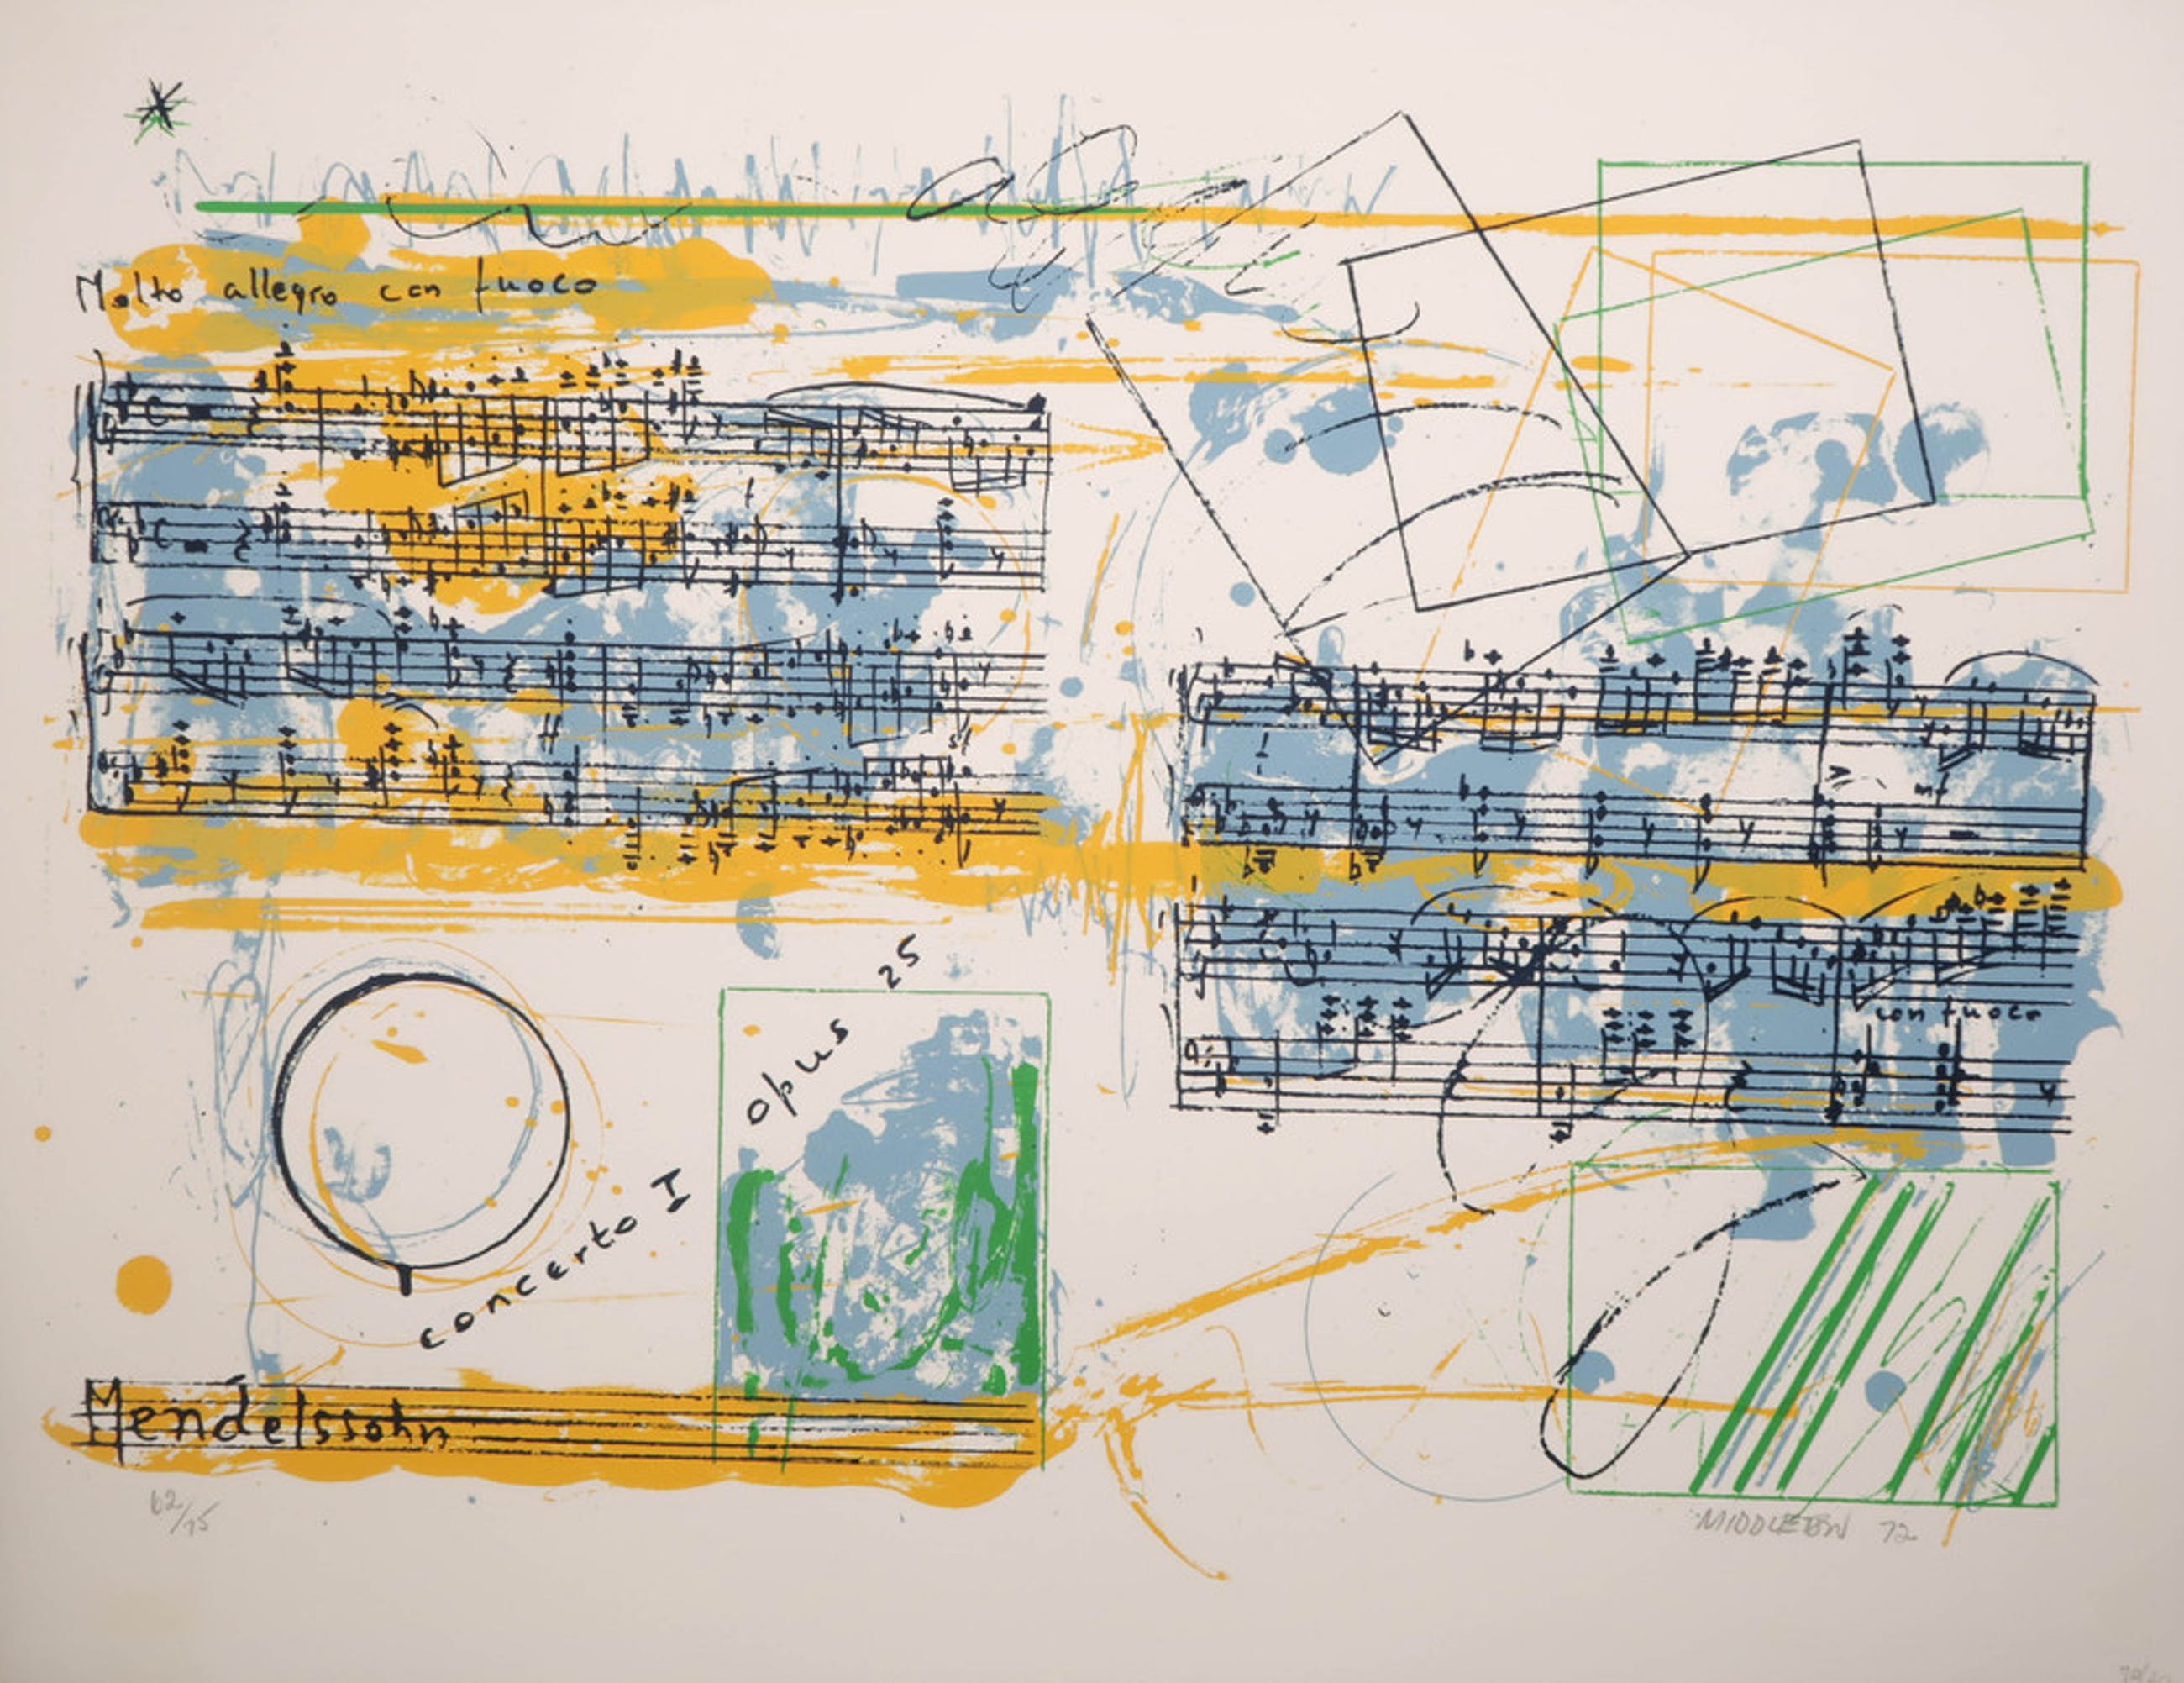 Molto allegro con fuoco
f
ff
sf
mf
con fuoco
opus 25
concerto I
Mendelssohn
62/75
MIDDLETON 72